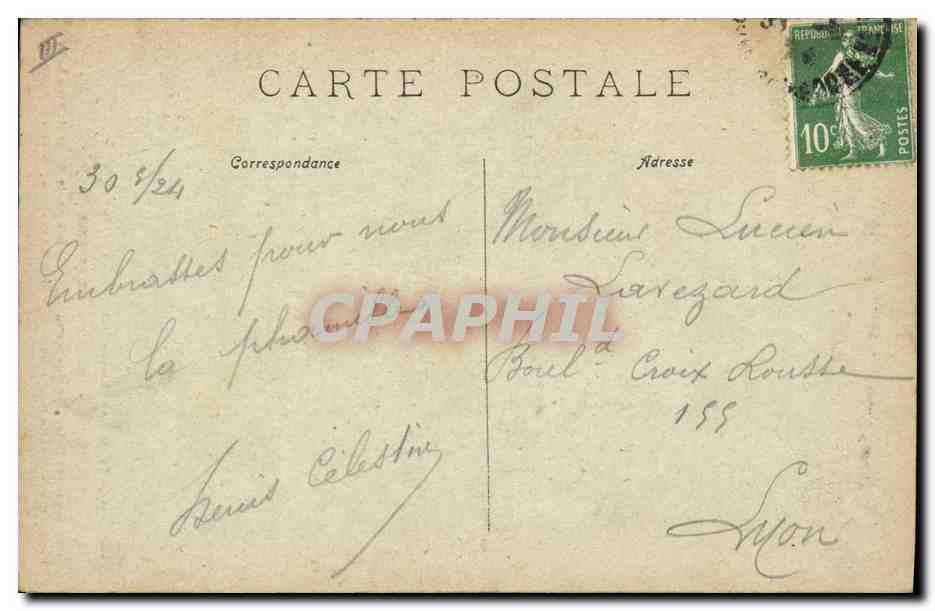 III
CARTE POSTALE
REPUBLIQUE FRANÇAISE
10c
POSTES
Correspondance
Adresse
30 8/24
Embrasses pour nous
la phamille
Célestin
Monsieur Lucien
Lavezard
Boul d Croix Rousse
155
Lyon
CPAPHIL